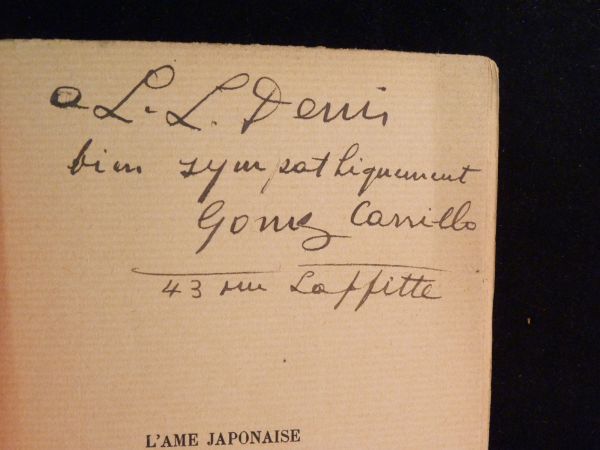 a L. L. Denis
bien sympathiquement
Gomez Carrillo
43 rue Laffitte
L'AME JAPONAISE